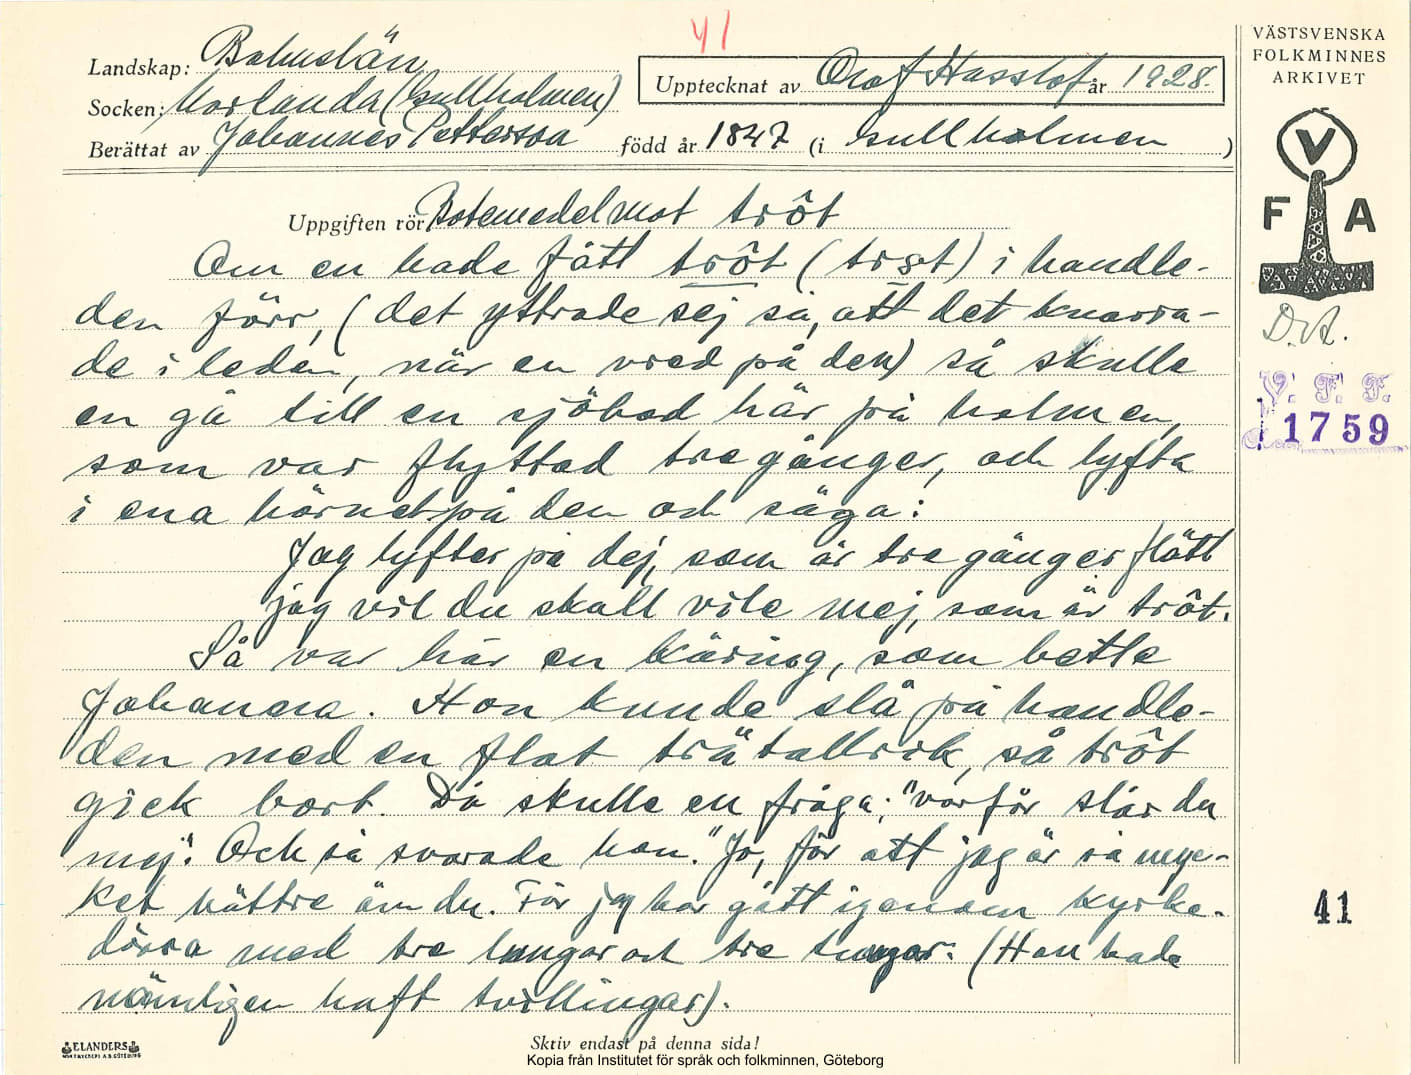 41
Landskap: Bohuslän
Socken: Morlanda (Gullholmen)
Berättat av Johannes Pettersson född år 1847 (i Gullholmen)
Upptecknat av Olof Hasslöf år 1928.
VÄSTSVENSKA
FOLKMINNES
ARKIVET
V
F A
D.A.
V. F. F.
1759
41
Uppgiften rör Botemedel mot trôt
Om en hade fått trôt (trɘt) i handle-
den förr, (det yttrade sej så, att det knarra-
de i leden, när en vred på den) så skulle
en gå till en sjöbod här på holmen,
som var flyttad tre gånger, och lyfta
i ena hörnet på den och säga:
Jag lyfter på dej, som är tre gånger flött
jag vil du skall vila mej, som är trôt.
Så var här en käring, som hette
Johanna. Hon kunde slå på handle-
den med en flat trätallrik, så trôt
gick bort. Då skulle en fråga: "varför slår du
mej". Och så svarade hon. "Jo, för att jag är så myc-
ket bättre än du. För jag har gått igenom kyrke-
dörra med tre lungor och tre tungor. (Hon hade
nämligen haft tvillingar).
ELANDERS
Skriv endast på denna sida!
Kopia från Institutet för språk och folkminnen, Göteborg